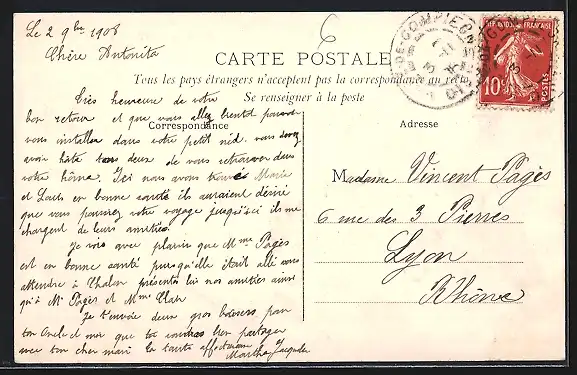 Le 2 9bre 1908
Chère Antonita
6
CARTE POSTALE
Tous les pays étrangers n'acceptent pas la correspondance au recto
Se renseigner à la poste
Correspondance
Adresse
RÉPUBLIQUE FRANÇAISE
10c
POSTES
Très heureuse de votre
bon retour et que vous allez bientôt pouvoir
vous installer dans votre petit nid. vous devez
avoir hâte tous deux de vous retrouver dans
votre home. Ici nous avons trouvé Marie
et Louis en bonne santé ils auraient désiré
que vous poussiez votre voyage jusqu'ici ils me
chargent de leurs amitiés.
Je vois avec plaisir que Mme Pagès
est en bonne santé puisqu'elle était allé vous
attendre à Chalon présentes lui nos amitiés ainsi
qu'à Mr Pagès et Mme
Je t'envoie deux gros baisers pour
ton Oncle et moi que tu voudras bien partager
avec ton cher mari ta tante affectionnée
Martha Jacquelin
Madame Vincent Pagès
6 rue des 3 Pierres
Lyon
Rhône